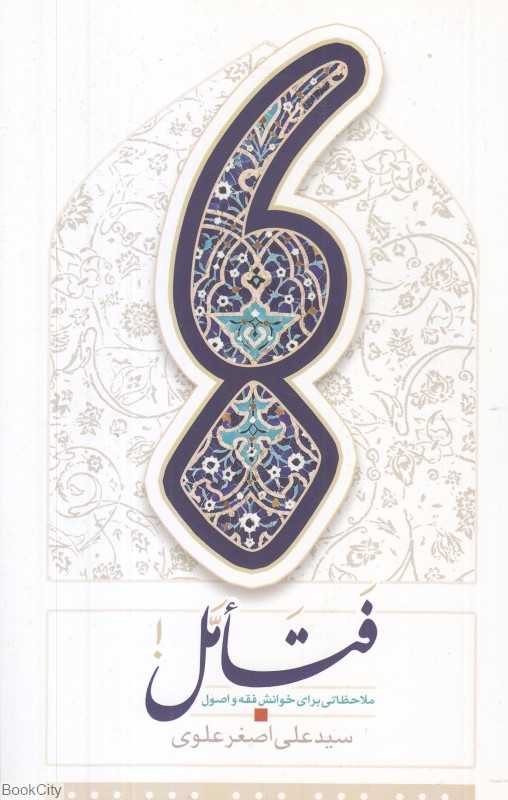 فَتَأمَّل!
ملاحظاتی برای خوانش فقه و اصول
سیدعلی‌اصغر علوی
BookCity